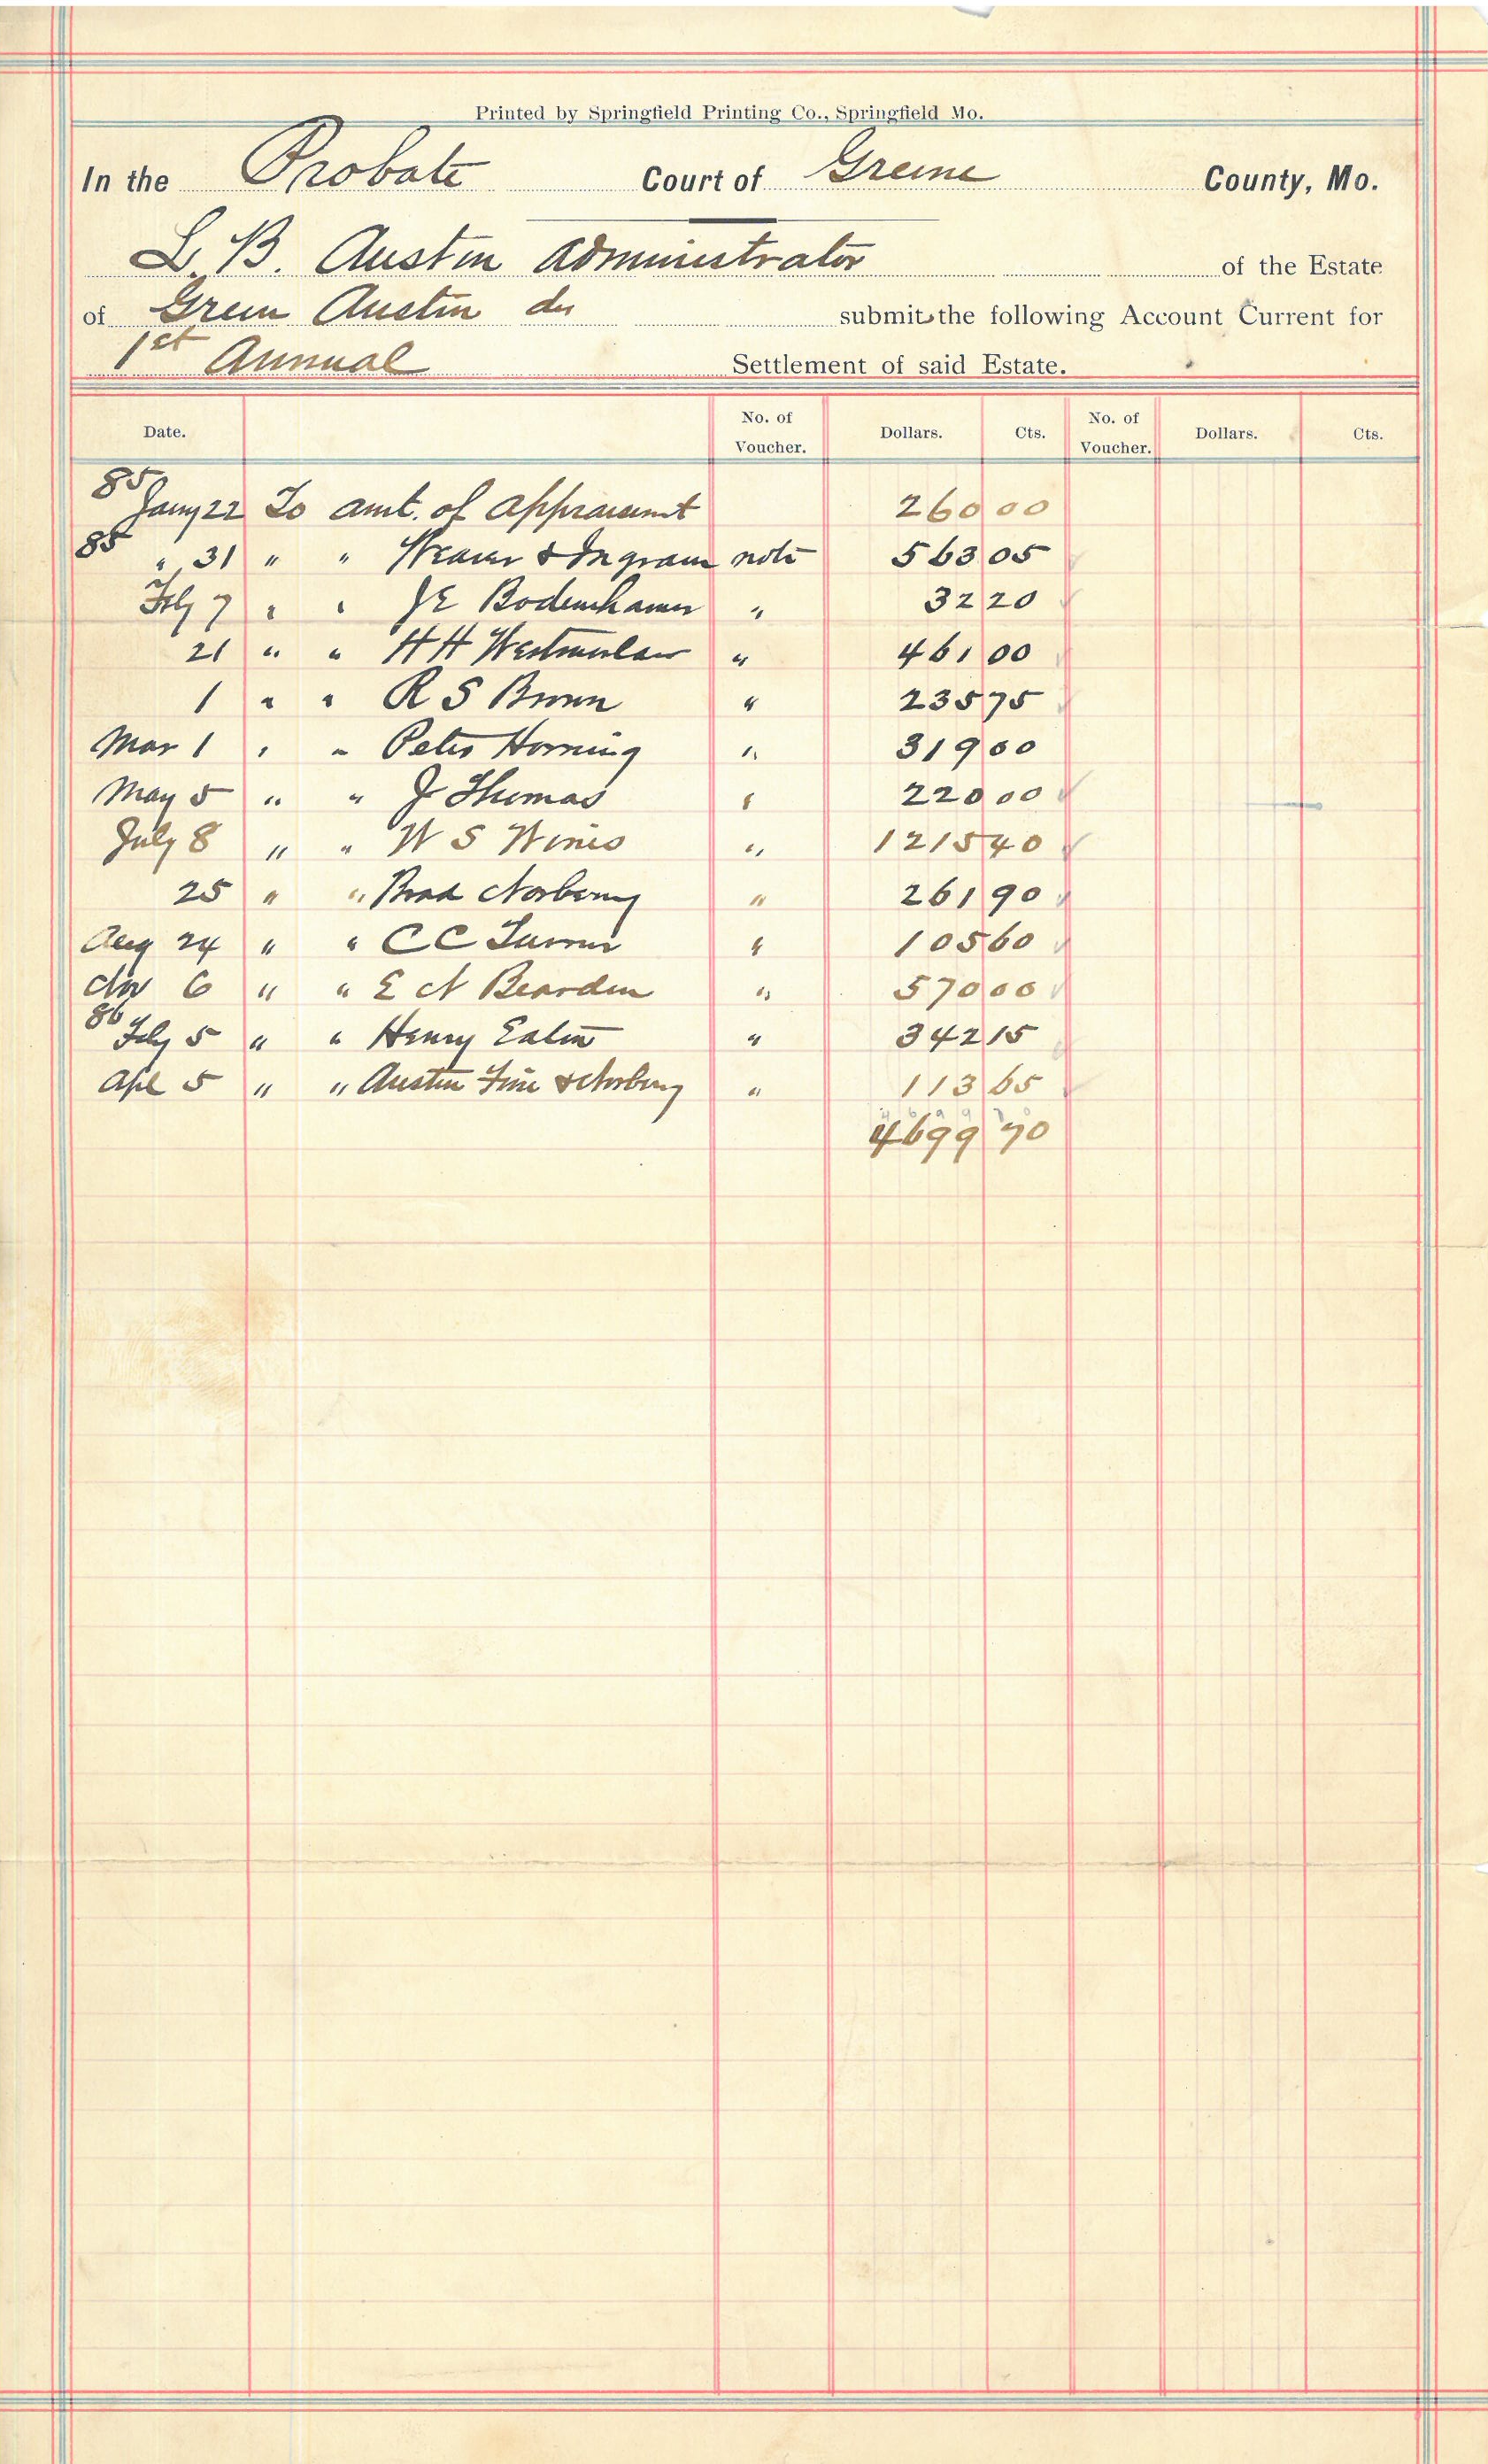 Printed by Springfield Printing Co., Springfield Mo.
In the Probate Court of Greene County, Mo.
L. B. Austin administrator of the Estate
of Green Austin submit the following Account Current for
1st Annual Settlement of said Estate.
Date. No. of Voucher. Dollars. Cts. No. of Voucher. Dollars. Cts.
85
Jany 22 To amt. of appraisemt 260 00
85 " 31 " " Weaver & Ingram note 563 05
Feby 7 " " J E Bodenhamer " 32 20
21 " " H H " 461 00
1 " " R S Brown " 235 75
Mar 1 " " Peter Horning " 319 00
May 5 " " J Thomas " 220 00
July 8 " " W S Wines " 1215 40
25 " " Brad Norberry " 261 90
Aug 24 " " C C Turner " 105 60
Nov 6 " " E N Bearden " 570 00
86
Feby 5 " " Henry Eaton " 342 15
Apl 5 " " Austin & Norbury " 113 65
4699 70